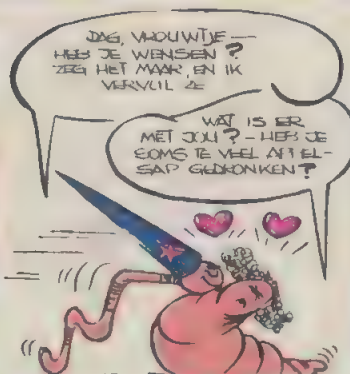 DAG, VROUWTJE —
HEB JE WENSEN?
ZEG HET MAAR, EN IK
VERVUL ZE
WAT IS ER
MET JOU? - HEB JE
SOMS TE VEEL APPEL-
SAP GEDRONKEN?